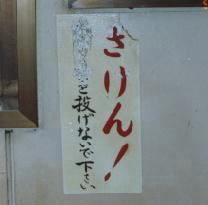 さりん!
を投げないで下さい